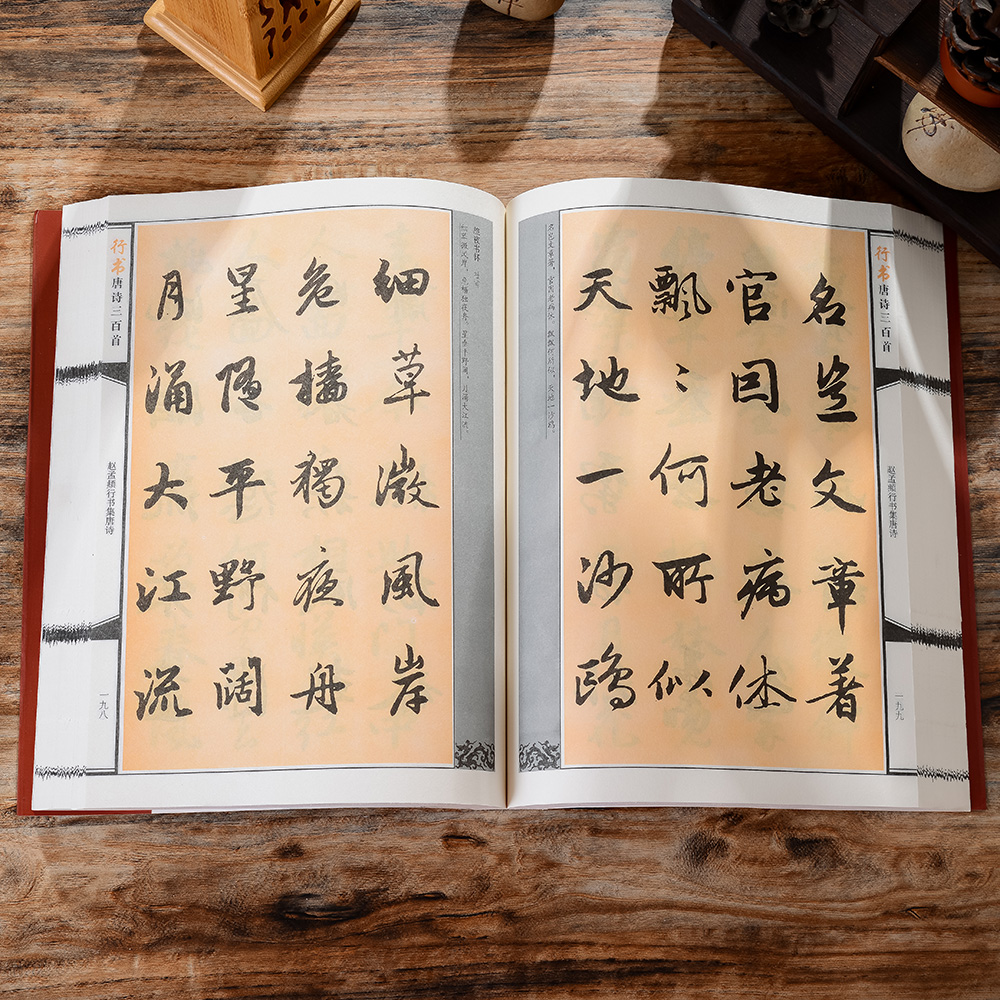 行书唐诗三百首
赵孟頫行书集唐诗
一九八
旅夜书怀 杜甫
细草微风岸,危樯独夜舟。星垂平野阔,月涌大江流。
細草微風岸
危檣獨夜舟
星隨平野阔
月涌大江流
名岂文章著,官因老病休。飘飘何所似,天地一沙鸥。
名豈文章著
官因老病休
飄〻何所似
天地一沙鷗
行书唐诗三百首
赵孟頫行书集唐诗
一九九